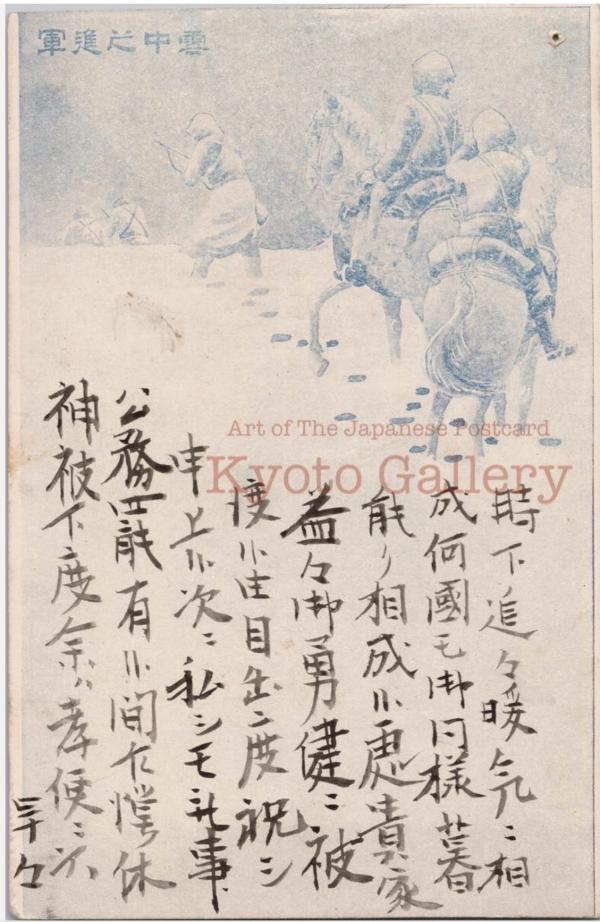 雲中之進軍
Art of The Japanese Postcard
Kyoto Gallery
時下追々暖気ニ相
成何國モ御同様暮
能ク相成候處貴家
益々御勇健ニ被
度候由目出度祝シ
申上候次ニ私シモ無事
公務罷有候間乍憚休
神被下度余ハ幸便ニ
草々